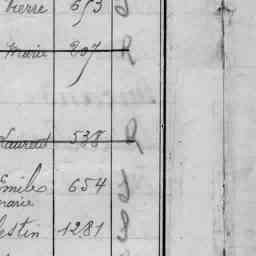 Pierre 653
Marie 807
Laurent 538
Emile 654
marie
estin 1281